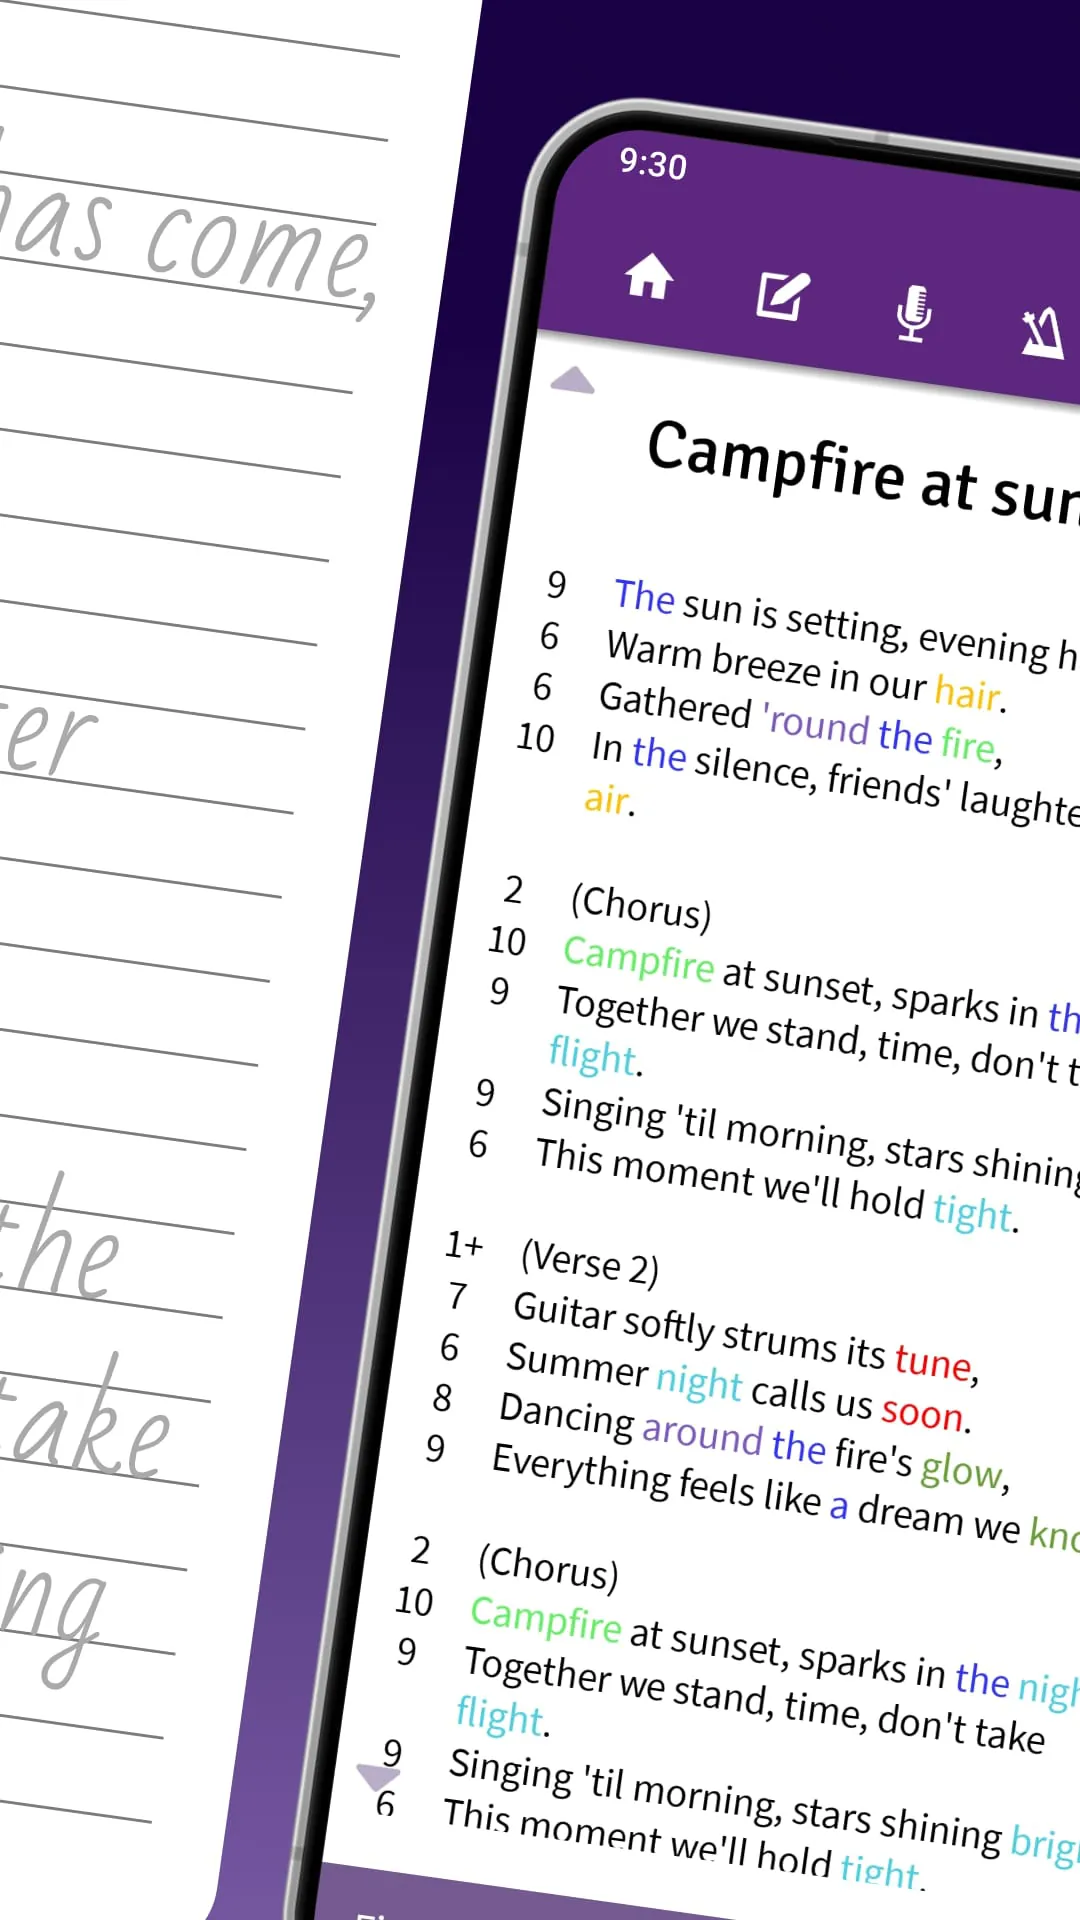 as come,
er
the
take
ing
9:30
Campfire at
9 The sun is setting, evening
6 Warm breeze in our hair.
6 Gathered 'round the fire,
10 In the silence, friends' laughte
air.
2 (Chorus)
10 Campfire at sunset, sparks in th
9 Together we stand, time, don't t
flight.
9 Singing 'til morning, stars shining
6 This moment we'll hold tight.
1+ (Verse 2)
7 Guitar softly strums its tune,
6 Summer night calls us soon.
8 Dancing around the fire's glow,
9 Everything feels like a dream we kno
2 (Chorus)
10 Campfire at sunset, sparks in the nigh
9 Together we stand, time, don't take
flight.
9 Singing 'til morning, stars shining brigh
6 This moment we'll hold tight.